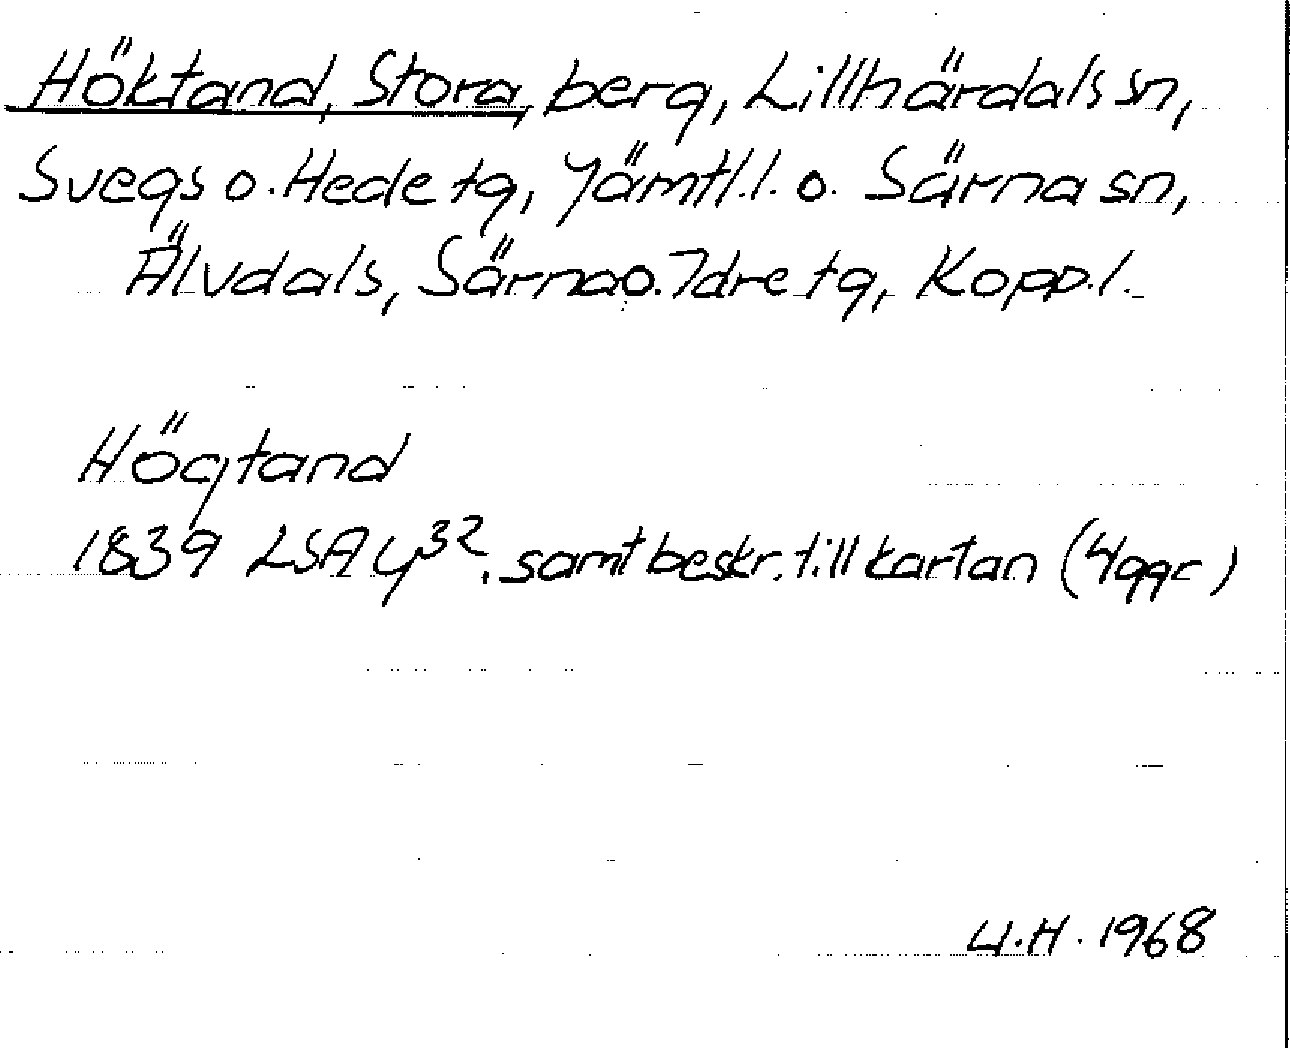 Höktand, Stora, berg, Lillhärdals sn,
Svegs o. Hede tg, Jämtl. l. o. Särna sn,
Älvdals, Särna o. Idre tg, Kopp. l.
Högtand
1839 LSA y³², samt beskr. till kartan (4 ggr)
U.H. 1968